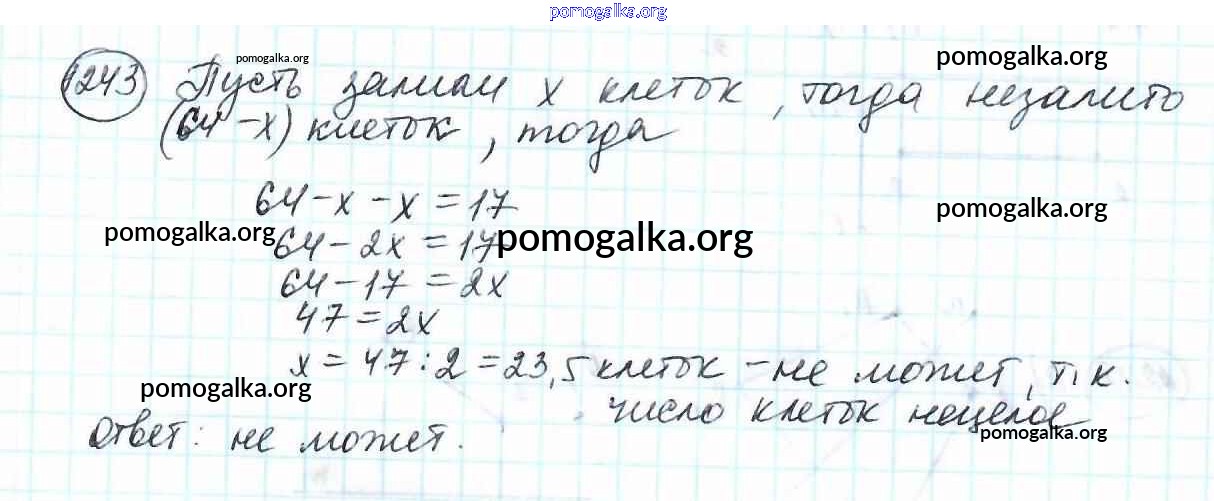 pomogalka.org
1243 Пусть залили x клеток, тогда незалито
pomogalka.org
pomogalka.org
(64-x) клеток, тогда
64-x-x=17
pomogalka.org
pomogalka.org
64-2x=17
pomogalka.org
64-17=2x
47=2x
x=47:2=23,5 клеток - не может, т.к.
pomogalka.org
число клеток нецелое
pomogalka.org
Ответ: не может.